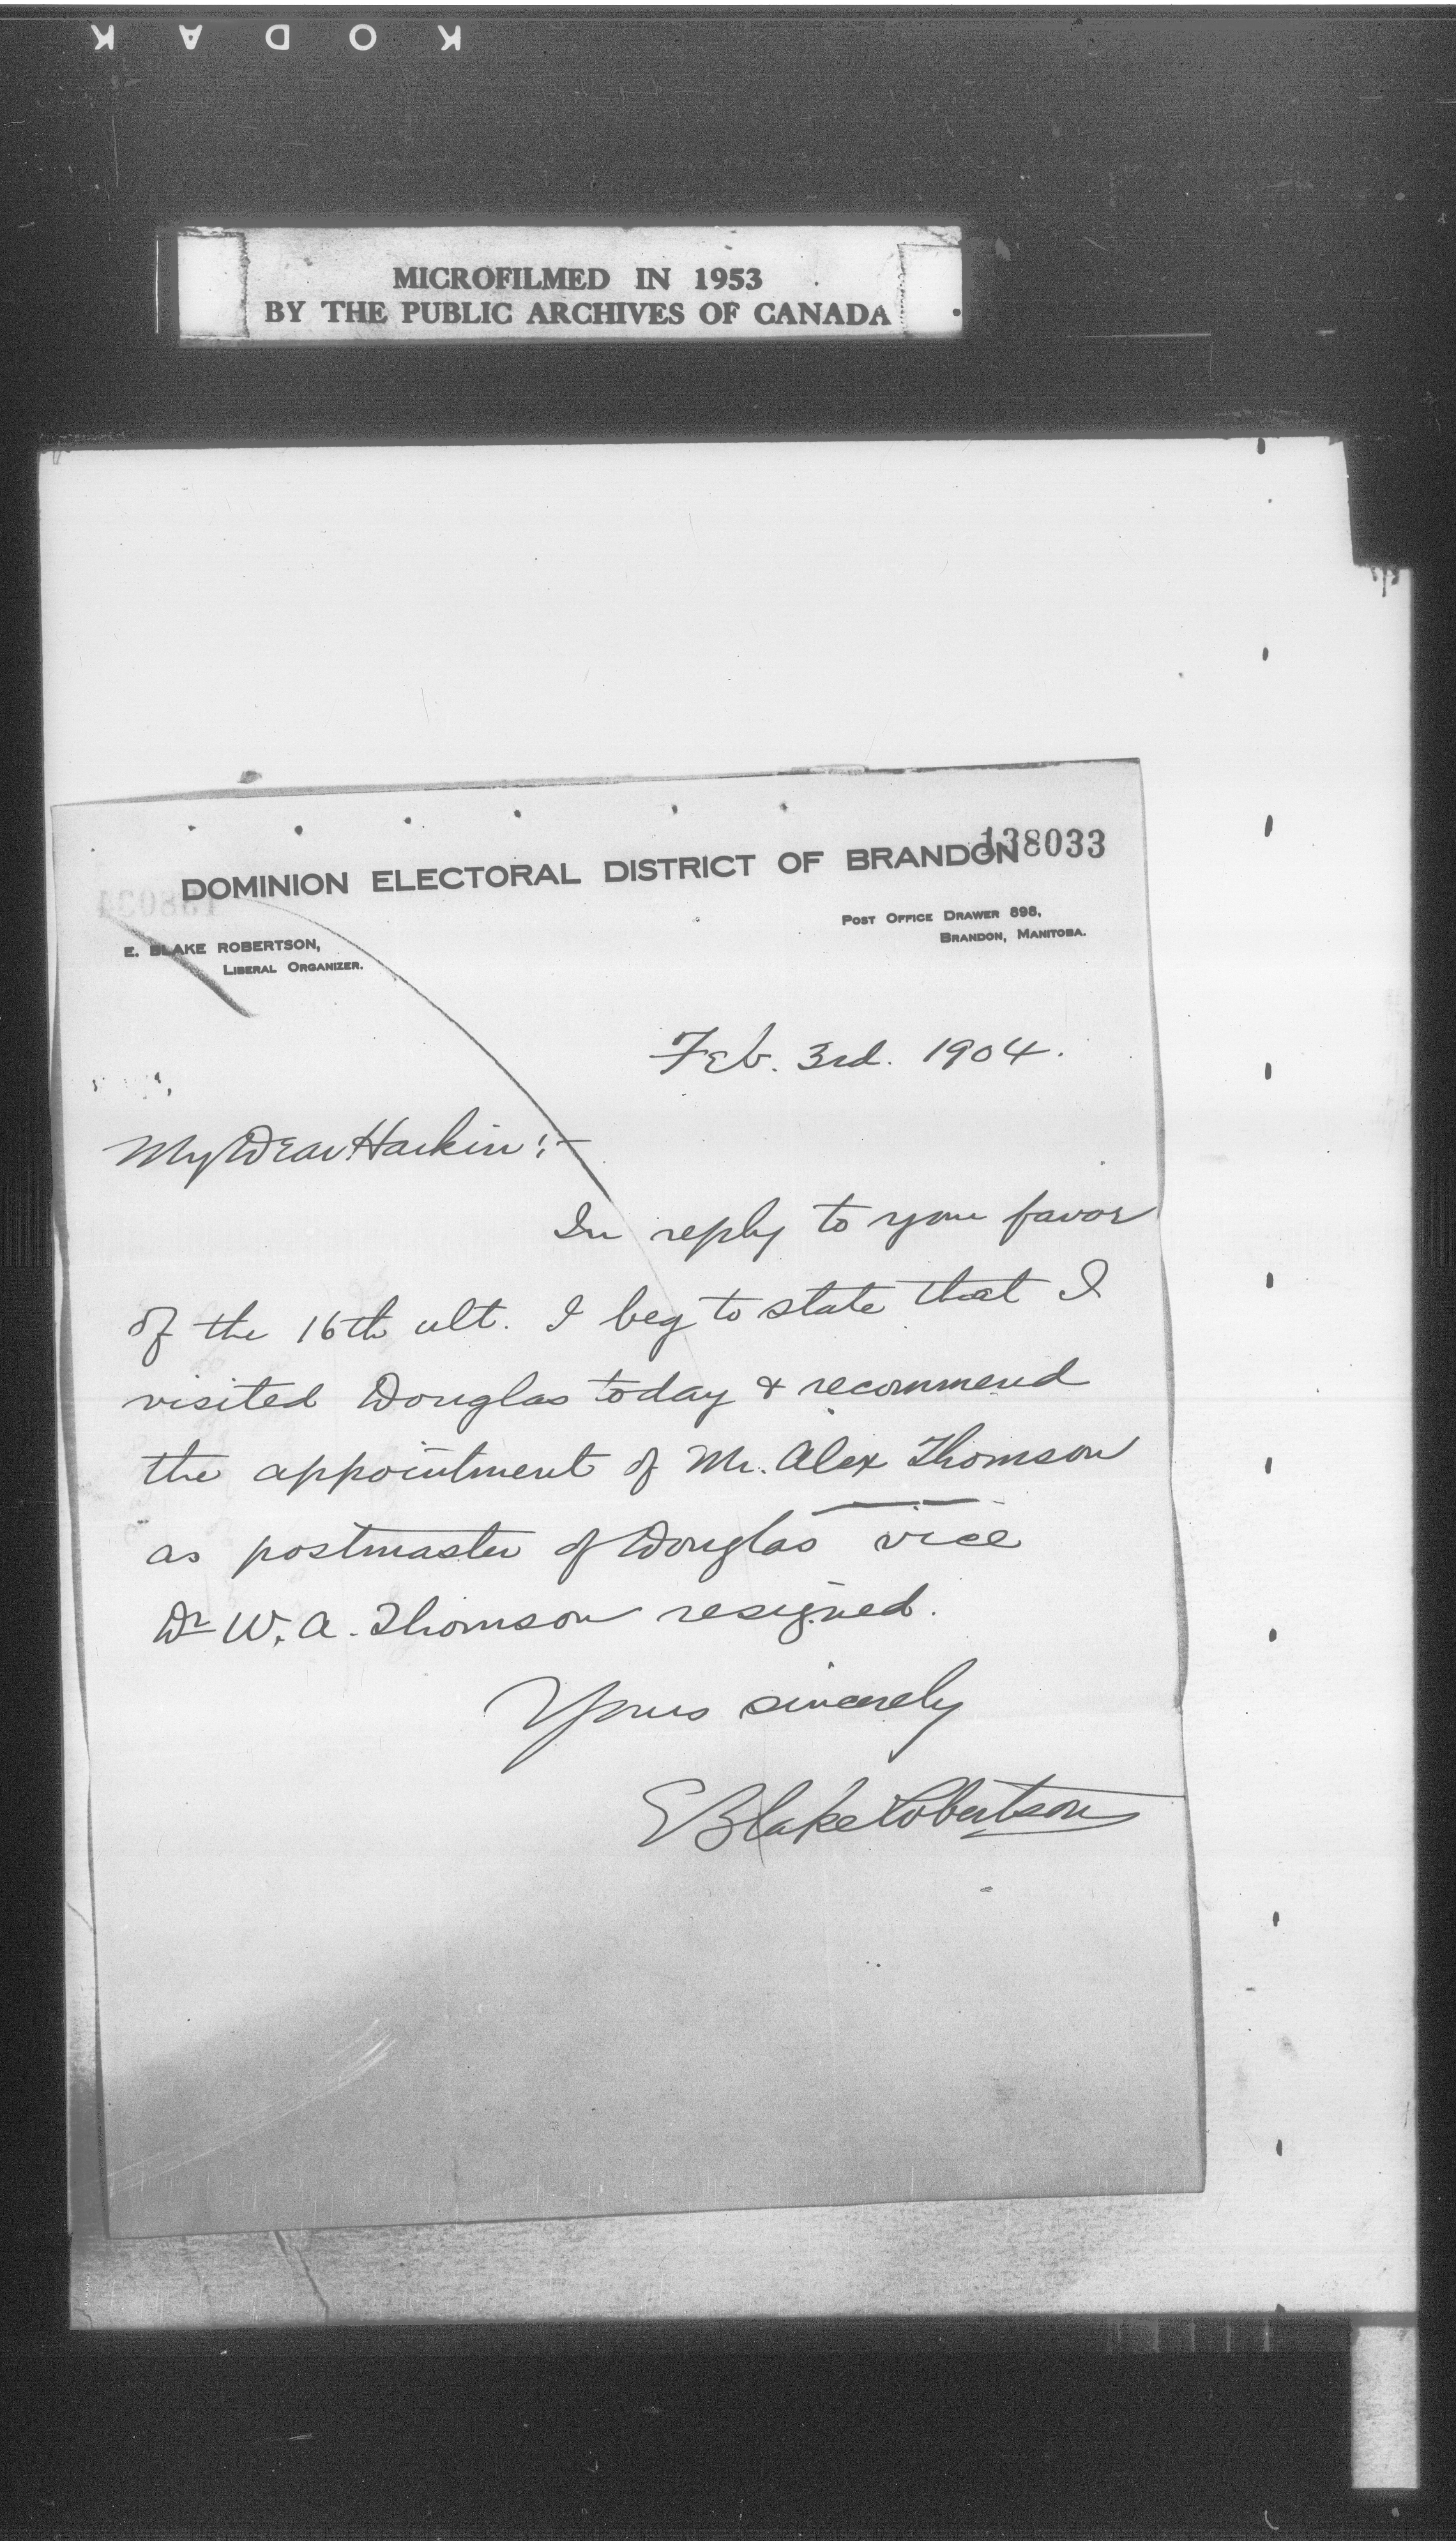 KODAK
MICROFILMED IN 1953
BY THE PUBLIC ARCHIVES OF CANADA
138033
DOMINION ELECTORAL DISTRICT OF BRANDON
POST OFFICE DRAWER 898,
BRANDON, MANITOBA.
E. BLAKE ROBERTSON,
LIBERAL ORGANIZER.
Feb. 3rd. 1904.
My Dear Harkin:-
In reply to your favor
of the 16th ult. I beg to state that I
visited Douglas today & recommend
the appointment of Mr. Alex Thomson
as postmaster of Douglas vice
Dr W. A. Thomson resigned.
Yours sincerely
E Blake Robertson